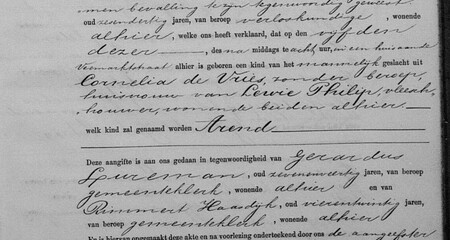 men bevalling te zijn tegenwoordig geweest
oud zesendertig jaren, van beroep verloskundige, wonende
alhier, welke ons heeft verklaard, dat op den vijfden
dezer, des na middags te acht uur, in een huis aan de
Veemarktstraat alhier is geboren een kind van het mannelijk geslacht uit
Cornelia de Vries, zonder beroep,
huisvrouw van Lewie Philip, vleesch-
houwer, wonende beiden alhier
welk kind zal genaamd worden Arend
Deze aangifte is aan ons gedaan in tegenwoordigheid van Gerardus
Lureman, oud zevenveertig jaren, van beroep
gemeenteklerk, wonende alhier en van
Remmert Haasdijk, oud vierentwintig jaren, van
beroep gemeenteklerk, wonende alhier
En is hiervan opgemaakt deze akte en na voorlezing onderteekend door ons de aangeefster